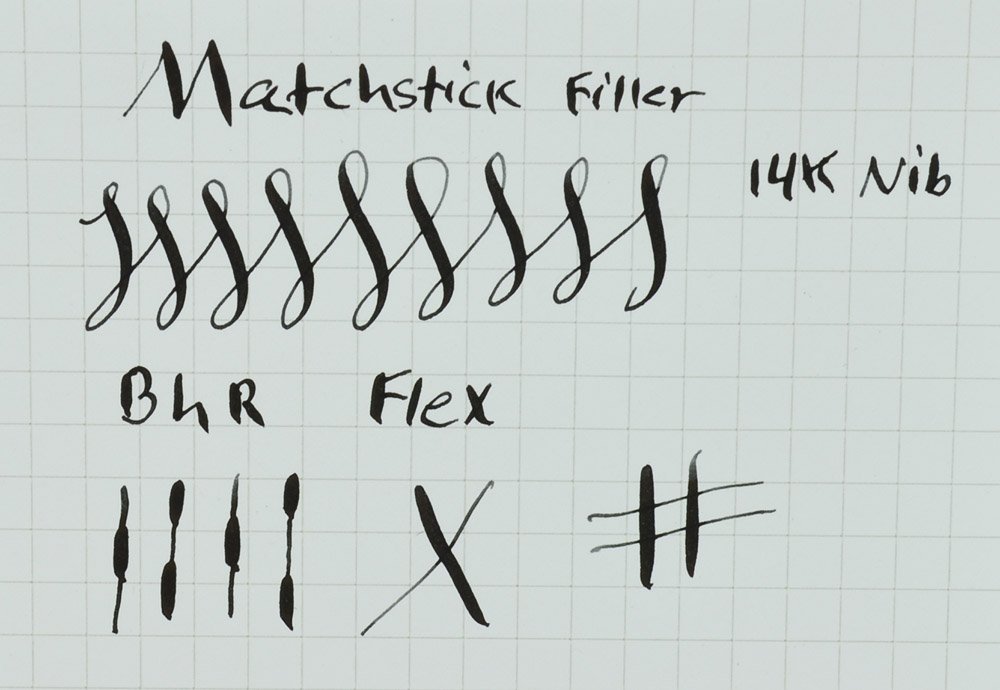 Matchstick Filler
14K Nib
BhR Flex